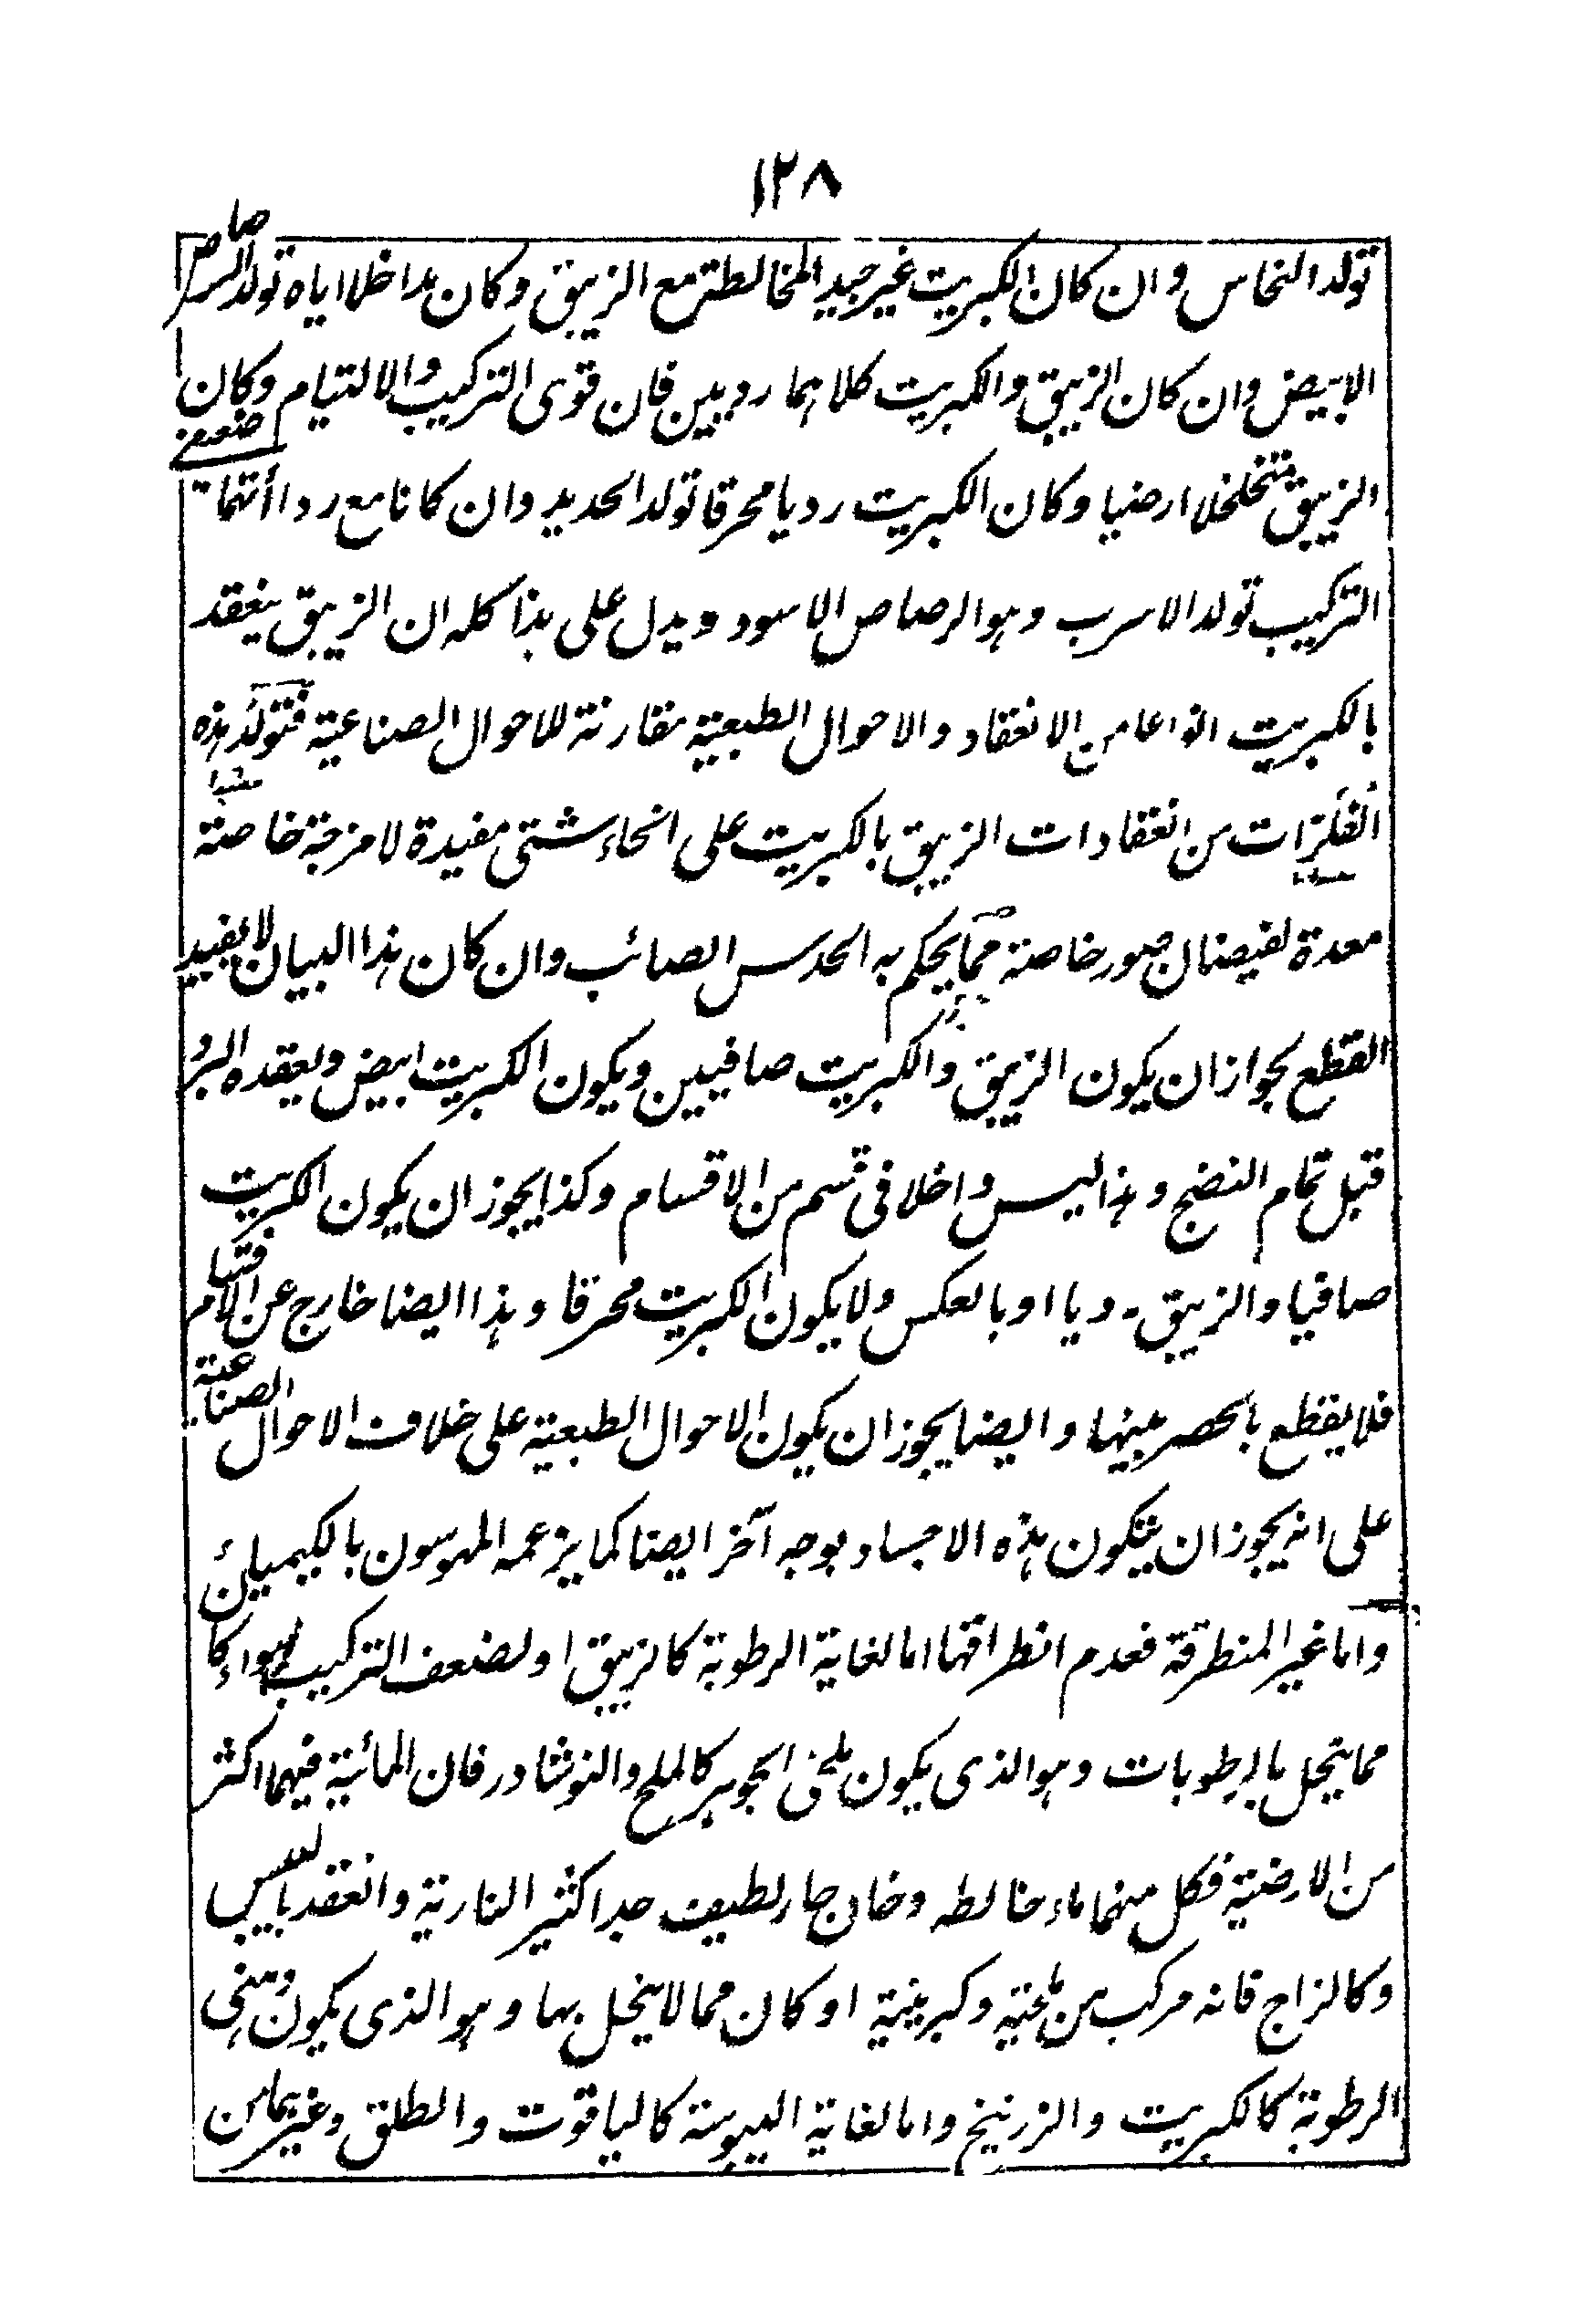 ١٢٨
تولد النحاس وان كان الكبريت غير جيد المخالطة مع الزيبق وكان مداخلا اياه تولد الرصاص
الابيض وان كان الزيبق والكبريت كلاهما رديين فان قوى التركيب والالتيام وكان
الزيبق متخلخلا ارضيا وكان الكبريت رديا محرقا تولد الحديد وان كانا مع رداأتهما ضعيفى
التركيب تولد الاسرب وهو الرصاص الاسود ويدل على هذا كله ان الزيبق ينعقد
بالكبريت انواعا من الانعقاد والاحوال الطبعية مقارنة للاحوال الصناعية فتولد هذه
الفلزات من انعقادات الزيبق بالكبريت على انحاء شتى مفيدة لامزجة خاصة
معدة لفيضان صور خاصة مما يحكم به الحدس الصائب وان كان هذا البيان لا يفيد
القطع بجواز ان يكون الزيبق والكبريت صافيين ويكون الكبريت ابيض ويعقده البرد
قبل تمام النضج وهذا ليس داخلا فى قسم من الاقسام وكذا يجوز ان يكون الكبريت
صافيا والزيبق رديا او بالعكس ولا يكون الكبريت محرقا وهذا ايضا خارج عن الاقسام
فلا يقطع بالحصر عينها وايضا يجوز ان يكون الاحوال الطبعية على خلاف الاحوال الصناعية
على انه يجوز ان يتكون هذه الاجساد بوجه آخر ايضا كما يزعمه المهوسون بالكيمياء
واما غير المنطرقة فعدم انطراقها اما لغاية الرطوبة كالزيبق او لضعف التركيب سواء كان
مما ينحل بالرطوبات وهو الذى يكون ملحى الجوهر كالملح والنوشادر فان المائية فيهما اكثر
من الارضية فكل منهما ماء خالطه دخان حار لطيف جدا كثير النارية وانعقد باليبس
وكالزاج فانه مركب من ملحية وكبريتية او كان مما لا ينحل بها وهو الذى يكون دهنى
الرطوبة كالكبريت والزرنيخ واما لغاية اليبوسة كالياقوت والطلق وغيرهما من